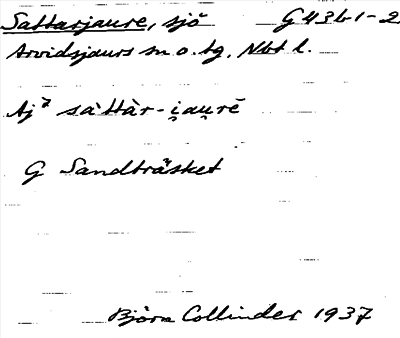 Sattarjaure, sjö G43b1-2
Arvidsjaurs sn o. tg, Nbt l.
Aj7 sàttàr-i̯au̯rē
G Sandträsket
Björn Collinder 1937